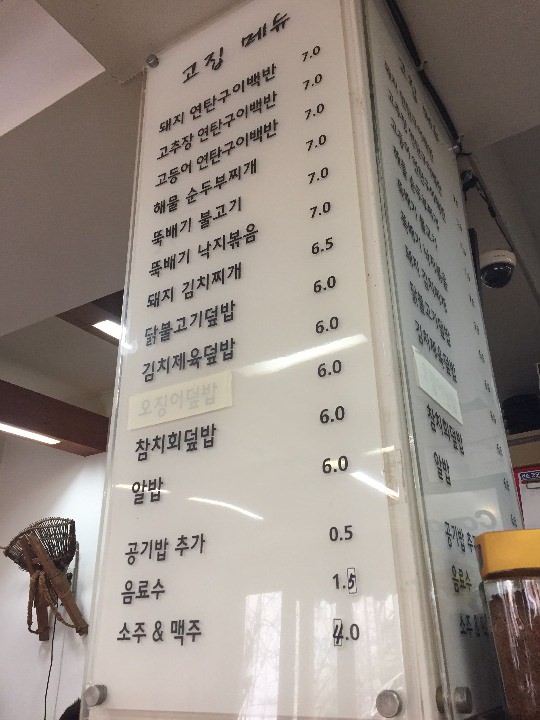 고집 메듀
돼지 연탄구이백반 7.0
고추장 연탄구이백반 7.0
고등어 연탄구이백반 7.0
해물 순두부찌개 7.0
뚝배기 불고기 7.0
뚝배기 낙지볶음 7.0
돼지 김치찌개 6.5
닭불고기덮밥 6.0
김치제육덮밥 6.0
오징어덮밥 6.0
참치회덮밥 6.0
알밥 6.0
공기밥 추가 0.5
음료수 1.5
소주 & 맥주 4.0